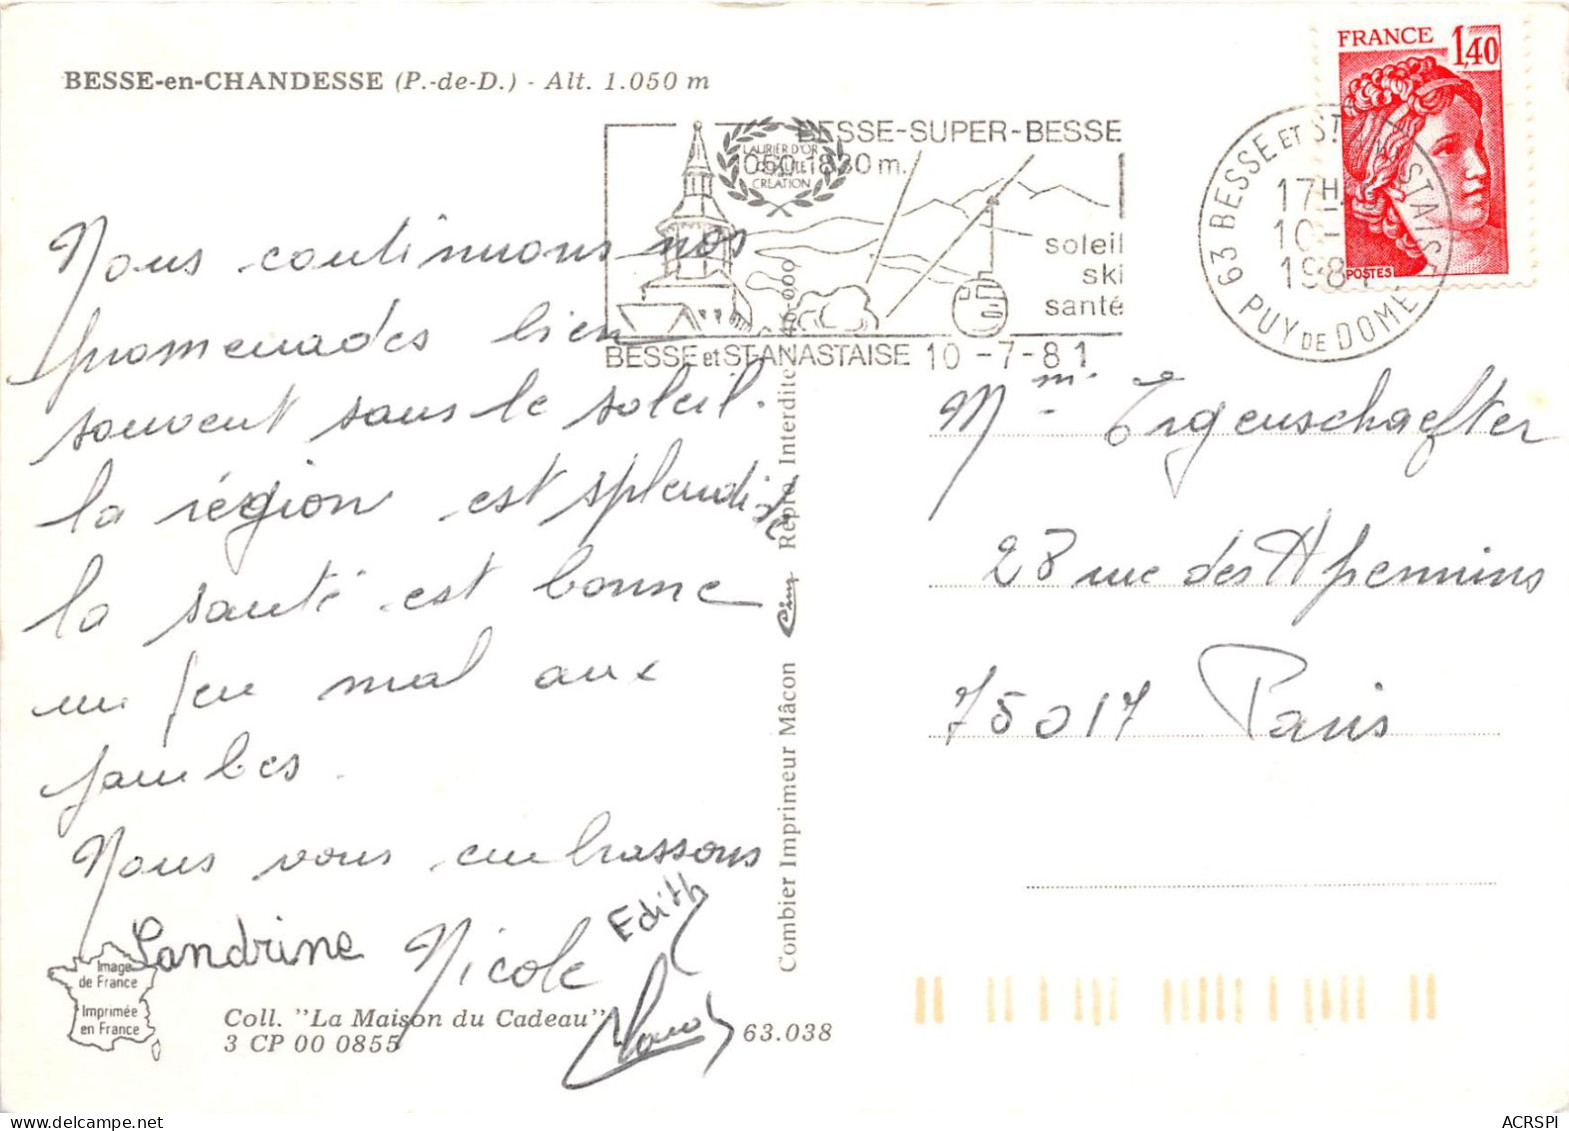 BESSE-en-CHANDESSE (P.-de-D.) - Alt. 1.050 m
FRANCE 1,40
POSTES
BESSE-SUPER-BESSE
1050 1830 m.
LAURIER D'OR
CRÉATION
soleil
ski
santé
BESSE et ST-ANASTAISE 10 -7-81
63 BESSE ET ST ANASTAISE
17H
10-
1981
PUY DE DOME
Nous continuons nos
promenades bien
souvent sans le soleil.
la région est splendide
la santé est bonne
un peu mal aux
jambes.
Nous vous embrassons
Sandrine Nicole Edith
Mme
23 rue des Apennins
75017 Paris
Combier Imprimeur Mâcon Cim Repro Interdite 46-000
Image
de France
Imprimée
en France
Coll. "La Maison du Cadeau"
3 CP 00 0855
63.038
ACRSPI